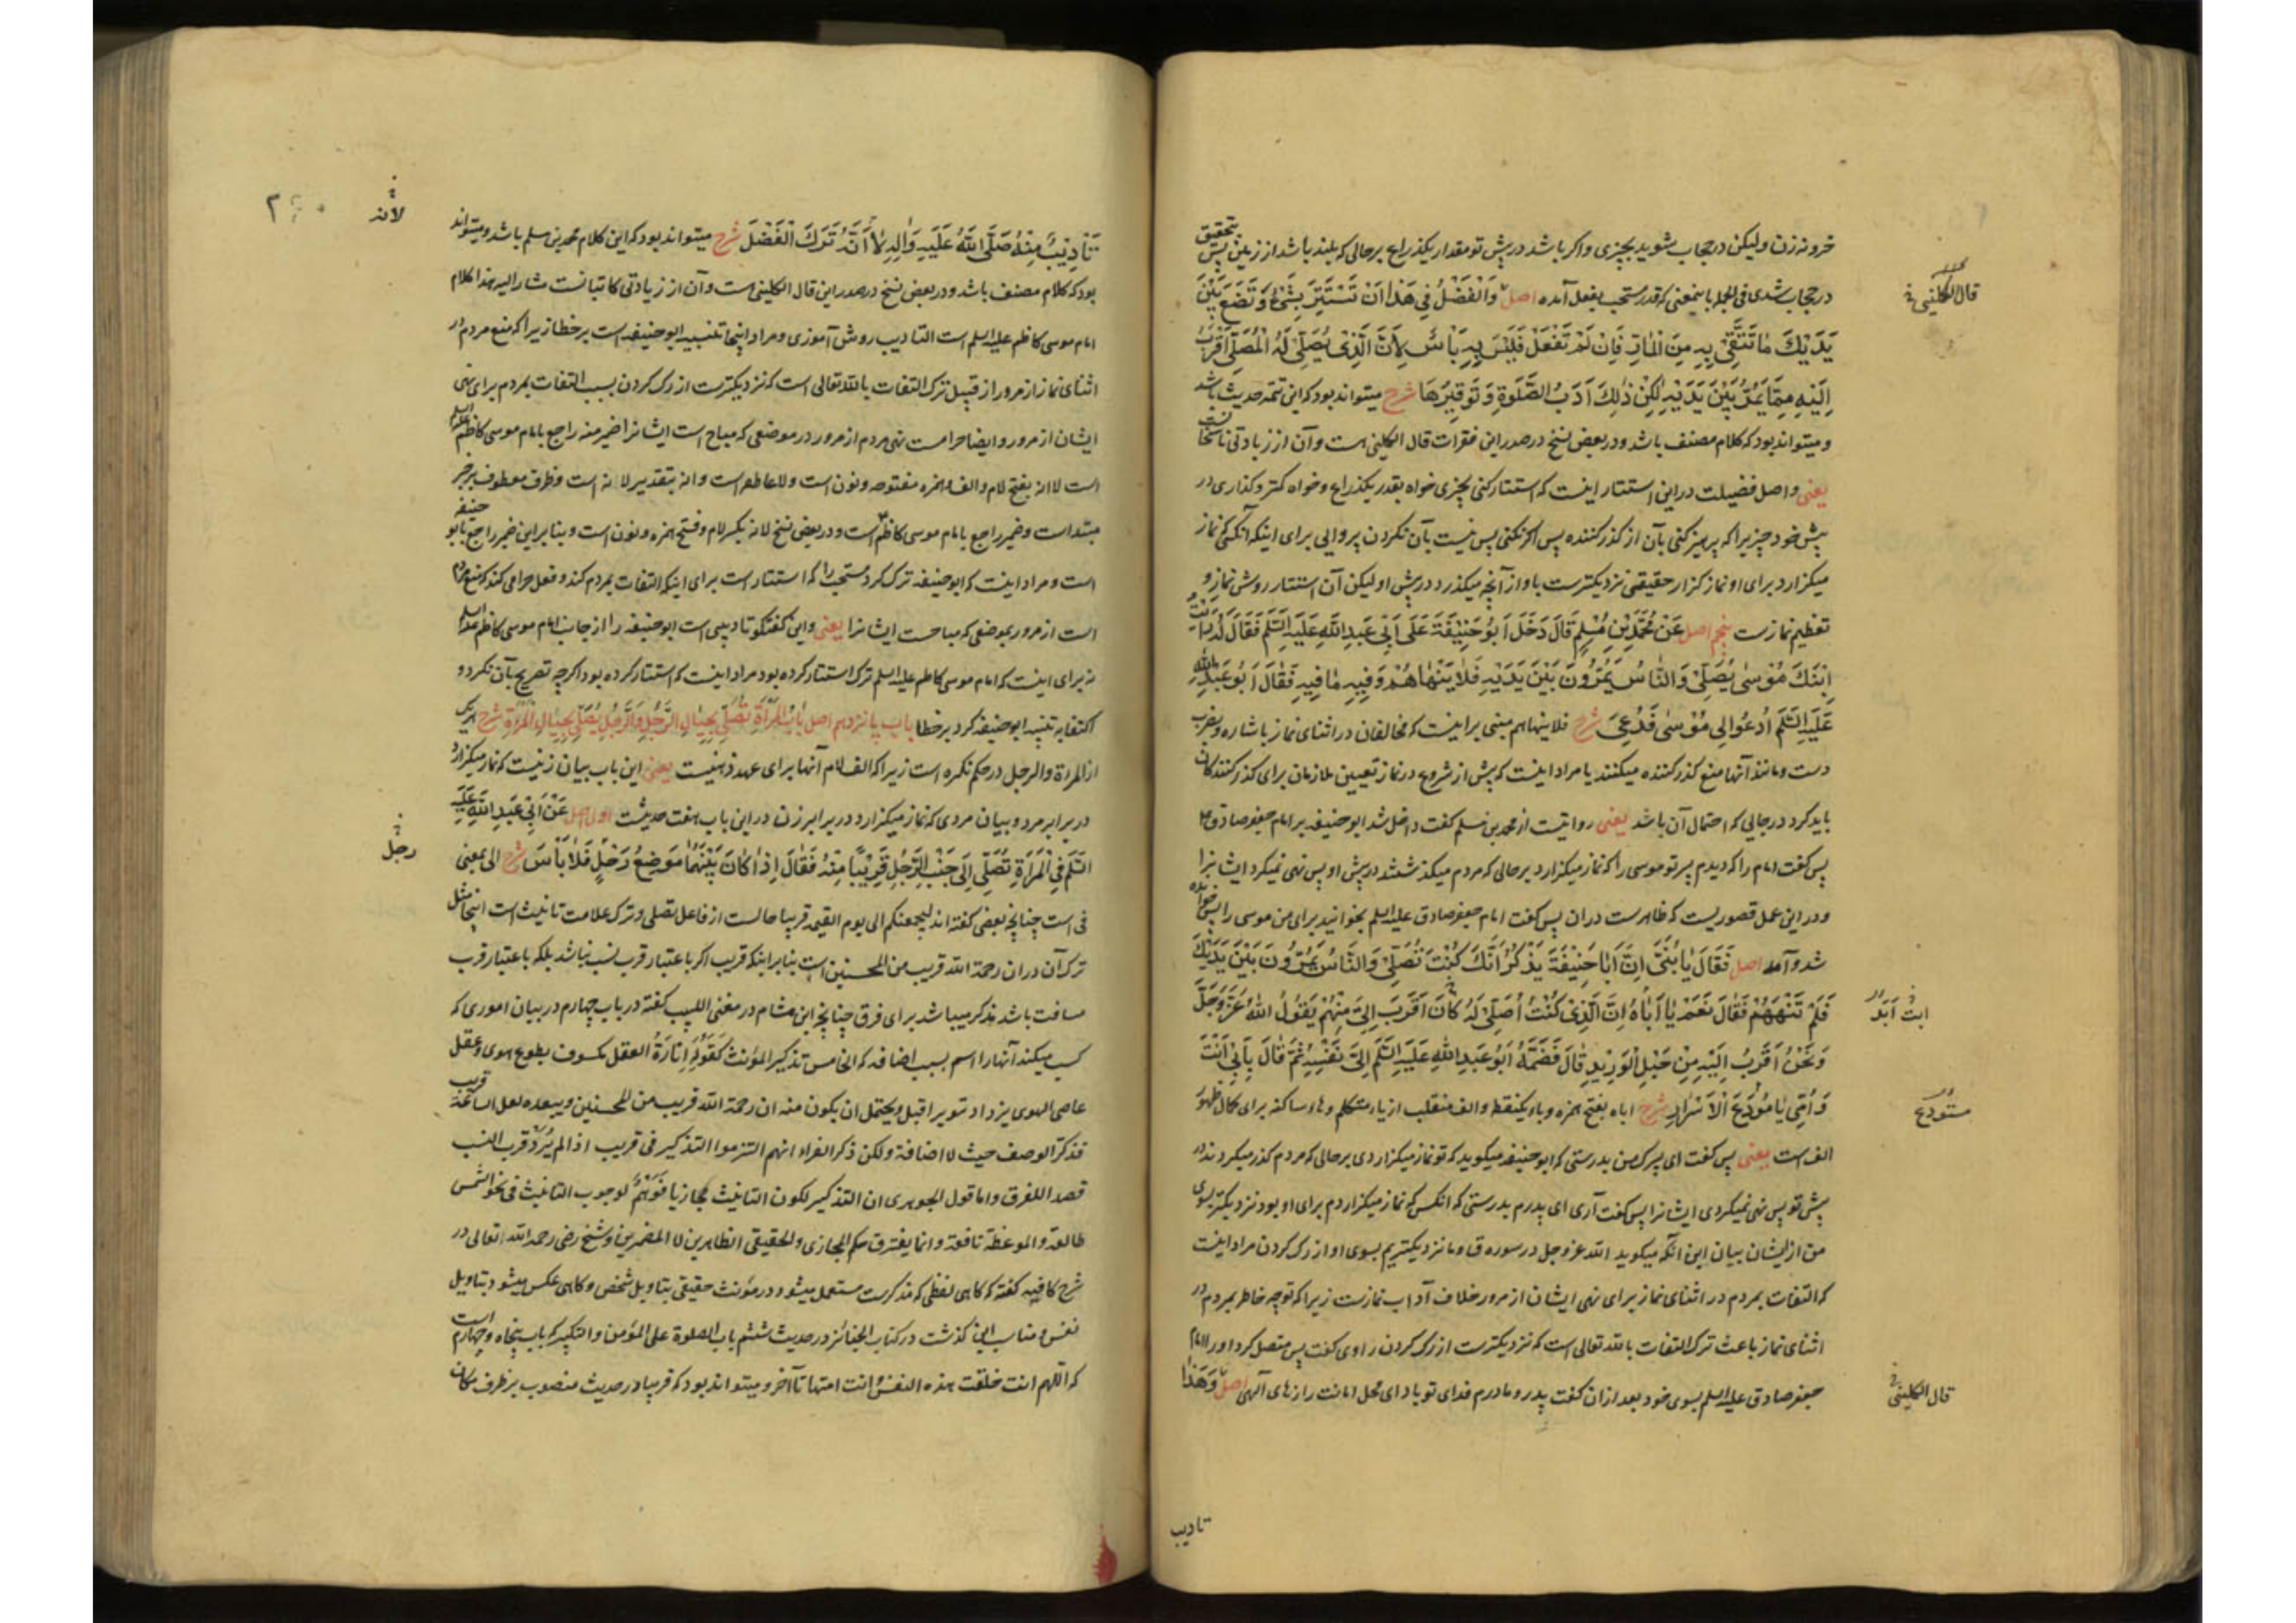 خر و نه زن و لیکن در حجاب شوید بچیزی و اگر باشد در پیش تو مقدار یکذراع بر حالی که بلند باشد از زمین پس بتحقیق
در حجاب شدی فی الجمله باینمعنی که قدر مستحب بفعل آمده اصل وَالْفَضْلُ فِی هَذَا اَنْ تَسْتَتِرَ بِشَیْءٍ وَ تَضَعَ بَیْنَ
قال الکلینی
یَدَیْکَ مَا تَتَّقِی بِهِ مِنَ الْمَارِّ فَاِنْ لَمْ تَفْعَلْ فَلَیْسَ بِهِ بَأْسٌ لِاَنَّ الَّذِی یُصَلِّی لَهُ الْمُصَلِّی اَقْرَبُ
اِلَیْهِ مِمَّا یَمُرُّ بَیْنَ یَدَیْهِ لَکِنْ ذَلِکَ اَدَبُ الصَّلَوةِ وَ تَوْقِیرُهَا شرح میتواند بود که این تتمه حدیث باشد
و میتواند بود که کلام مصنف باشد و در بعض نسخ در صدر این فقرات قال الکلینی است و آن از زیادتی ناسخان است
یعنی و اصل فضیلت در این استتار اینست که استتار کنی بچیزی خواه بقدر یکذراع و خواه کمتر و گذاری در
پیش خود چیزیرا که پرهیز کنی بآن از گذر کننده پس اگر نکنی پس نیست بآن نکردن پروایی برای اینکه آنکس که نماز
میگزارد برای او نماز گزار حقیقی نزدیکترست باو از آنچه میگذرد در پیش او لیکن آن استتار روش نماز و
تعظیم نمازست پنجم اصل عَنْ مُحَمَّدِ بْنِ مُسْلِمٍ قَالَ دَخَلَ اَبُو حَنِیفَةَ عَلَی اَبِی عَبْدِ اللّهِ عَلَیْهِ السَّلَمُ فَقَالَ لَهُ رَاَیْتُ
اِبْنَکَ مُوسَی یُصَلِّی وَ النَّاسُ یَمُرُّونَ بَیْنَ یَدَیْهِ فَلَا یَنْهَاهُمْ وَ فِیهِ مَا فِیهِ فَقَالَ اَبُو عَبْدِ اللّهِ
عَلَیْهِ السَّلَمُ اُدْعُوا لِی مُوسَی فَدُعِیَ شرح فلا ینهاهم مبنی بر اینست که مخالفان در اثنای نماز باشاره و بضرب
دست و مانند آنها منع گذر کننده میکنند یا مراد اینست که پیش از شروع در نماز تعیین ملازمان برای گذر کنندگان
باید کرد در جایی که احتمال آن باشد یعنی روایتست از محمد بن مسلم گفت داخل شد ابو حنیفه بر امام جعفر صادق ع
پس گفت امام را که دیدم پسر تو موسی را که نماز میگزارد بر حالی که مردم میگذشتند در پیش او پس نهی نمیکرد ایشانرا
و در این عمل قصوریست که ظاهرست در ان پس گفت امام جعفر صادق علیه السلم بخوانید برای من موسی را پس خوانده
شد و آمد اصل فَقَالَ یَا بُنَیَّ اِنَّ اَبَا حَنِیفَةَ یَذْکُرُ اَنَّکَ کُنْتَ تُصَلِّی وَ النَّاسُ یَمُرُّونَ بَیْنَ یَدَیْکَ
فَلَمْ تَنْهَهُمْ فَقَالَ نَعَمْ یَا اَبَاهُ اِنَّ الَّذِی کُنْتُ اُصَلِّی لَهُ کَانَ اَقْرَبَ اِلَیَّ مِنْهُمْ یَقُولُ اللّهُ عَزَّ وَ جَلَّ
وَ نَحْنُ اَقْرَبُ اِلَیْهِ مِنْ حَبْلِ الْوَرِیدِ قَالَ فَضَمَّهُ اَبُو عَبْدِ اللّهِ عَلَیْهِ السَّلَمُ اِلَی نَفْسِهِ ثُمَّ قَالَ بِاَبِی اَنْتَ
وَ اُمِّی یَا مُودَعَ الْاَسْرَارِ شرح اباه بفتح همزه و باء یکنقطه و الف منقلب از یاء متکلم و هاء ساکنه برای کمال ظهور
مستودع
الف است یعنی پس گفت ای پسرک من بدرستی که ابو حنیفه میگوید که تو نماز میگزاردی بر حالی که مردم گذر میکردند در
پیش تو پس نهی نمیکردی ایشانرا پس گفت آری ای پدرم بدرستی که آنکس که نماز میگزاردم برای او بود نزدیکتر بسوی
من از ایشان بیان این آنکه میگوید الله عز و جل در سوره ق و ما نزدیکتریم بسوی او از رگ گردن مراد اینست
که التفات بمردم در اثنای نماز برای نهی ایشان از مرور خلاف آداب نمازست زیرا که توجه خاطر بمردم در
اثنای نماز باعث ترک التفات بالله تعالی است که نزدیکترست از رگ گردن راوی گفت پس متصل کرد او را امام
جعفر صادق علیه السلم بسوی خود بعد از ان گفت پدر و مادرم فدای تو باد ای محل امانت رازهای الهی اصل وَ هَذَا
قال الکلینی
تادیب
تَأْدِیبٌ مِنْهُ صَلَّی اللّهُ عَلَیْهِ وَ آلِهِ لَا اَنَّهُ تَرَکَ الْفَضْلَ شرح میتواند بود که این کلام محمد بن مسلم باشد و میتواند
لانه
بود که کلام مصنف باشد و در بعض نسخ در صدر این قال الکلینی است و آن از زیادتی کاتبانست مشار الیه هذا کلام
امام موسی کاظم علیه السلم است التادیب روش آموزی و مراد اینجا تنبیه ابو حنیفه است بر خطا زیرا که منع مردم در
اثنای نماز از مرور از قبیل ترک التفات بالله تعالی است که نزدیکترست از رگ گردن بسبب التفات بمردم برای نهی
ایشان از مرور و ایضا حرامست نهی مردم از مرور در موضعی که مباح است ایشانرا ضمیر منه راجع بامام موسی کاظم علیه السلم
است لا انه بفتح لام و الف و همزه مفتوحه و نون است و لا عاطفه است و انه بتقدیر لانه است و ظرف معطوف بر خبر
مبتداست و ضمیر راجع بامام موسی کاظم است و در بعض نسخ لانه بکسر لام و فتح همزه و نون است و بنابر این ضمیر راجع بابو حنیفه
است و مراد اینست که ابو حنیفه ترک کرد مستحب را که استتار است برای اینکه التفات بمردم کند و فعل حرامی کند که منع مردم
است از مرور بموضعی که مباحست ایشانرا یعنی و این گفتگو تادیبی است ابو حنیفه را از جانب امام موسی کاظم علیه السلم
نه برای اینست که امام موسی کاظم علیه السلم ترک استتار کرده بود مراد اینست که استتار کرده بود اگرچه تصریح بآن نکرد و
اکتفا به تنبیه ابو حنیفه کرد بر خطا باب پانزدهم اصل بَابُ الْمَرْأَةِ تُصَلِّی بِحِیَالِ الرَّجُلِ وَ الرَّجُلِ یُصَلِّی بِحِیَالِ الْمَرْأَةِ شرح هر یک
از المراة و الرجل در حکم نکره است زیرا که الف لام آنها برای عهد ذهنیست یعنی این باب بیان زنیست که نماز میگزارد
در برابر مرد و بیان مردی که نماز میگزارد در برابر زن در این باب هفت حدیثست اول اصل عَنْ اَبِی عَبْدِ اللّهِ عَلَیْهِ
السَّلَمُ فِی الْمَرْأَةِ تُصَلِّی اِلَی جَنْبِ الرَّجُلِ قَرِیبًا مِنْهُ فَقَالَ اِذَا کَانَ بَیْنَهُمَا مَوْضِعُ رَحْلٍ فَلَا بَأْسَ شرح الی بمعنی
رجل
فی است چنانچه بعض گفته اند لیجمعنکم الی یوم القیمة قریبا حالست از فاعل تصلی و ترک علامت تانیث است اینجا مثل
ترک آن در ان رحمة الله قریب من المحسنین است بنابر اینکه قریب اگر باعتبار قرب نسب نباشد بلکه باعتبار قرب
مسافت باشد مذکر میباشد برای فرق چنانچه ابن هشام در مغنی اللبیب گفته در باب چهارم در بیان اموری که
کسب میکند آنها را اسم بسبب اضافه که الخامس تذکیر المؤنث کقوله إِنَارَةُ العقل مکسوف بطوع هوی و عقل
عاصی الهوی یزداد تنویرا قبل و یحتمل ان یکون منه ان رحمة الله قریب من المحسنین و یبعده لعل الساعة قریب
فذکر الوصف حیث لا اضافة و لکن ذکر الفراء انهم التزموا التذکیر فی قریب اذا لم یُرَد قرب النسب
قصدا للفرق و اما قول الجوهری ان التذکیر لکون التانیث مجازیا فوهم لوجوب التانیث فی نحو الشمس
طالعة و الموعظة نافعة و انما یفترق حکم المجازی و الحقیقی الظاهرین لا المضمرین و شیخ رضی رحمه الله تعالی در
شرح کافیه گفته که گاهی لفظی که مذکرست مستعمل میشود در مؤنث حقیقی بتاویل شخص و گاهی عکس میشود بتاویل
نفس و مناسب اینجا گذشت در کتاب الجنائز در حدیث ششم باب الصلوة علی المؤمن و التکبیر که باب پنجاه و چهارم است
که اللهم انت خلقت هذه النفس و انت امتها تا آخر و میتواند بود که قریبا در حدیث منصوب بر ظرف مکان